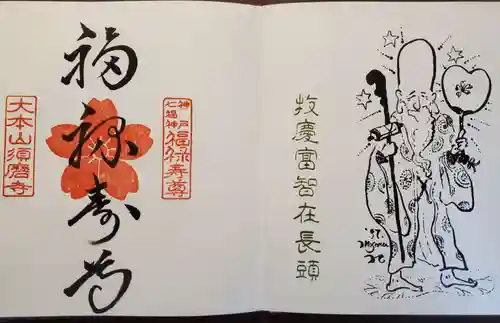 福禄寿尊
大本山須磨寺
神戸七福神
福禄寿尊
技慶富智在長頭
'97.